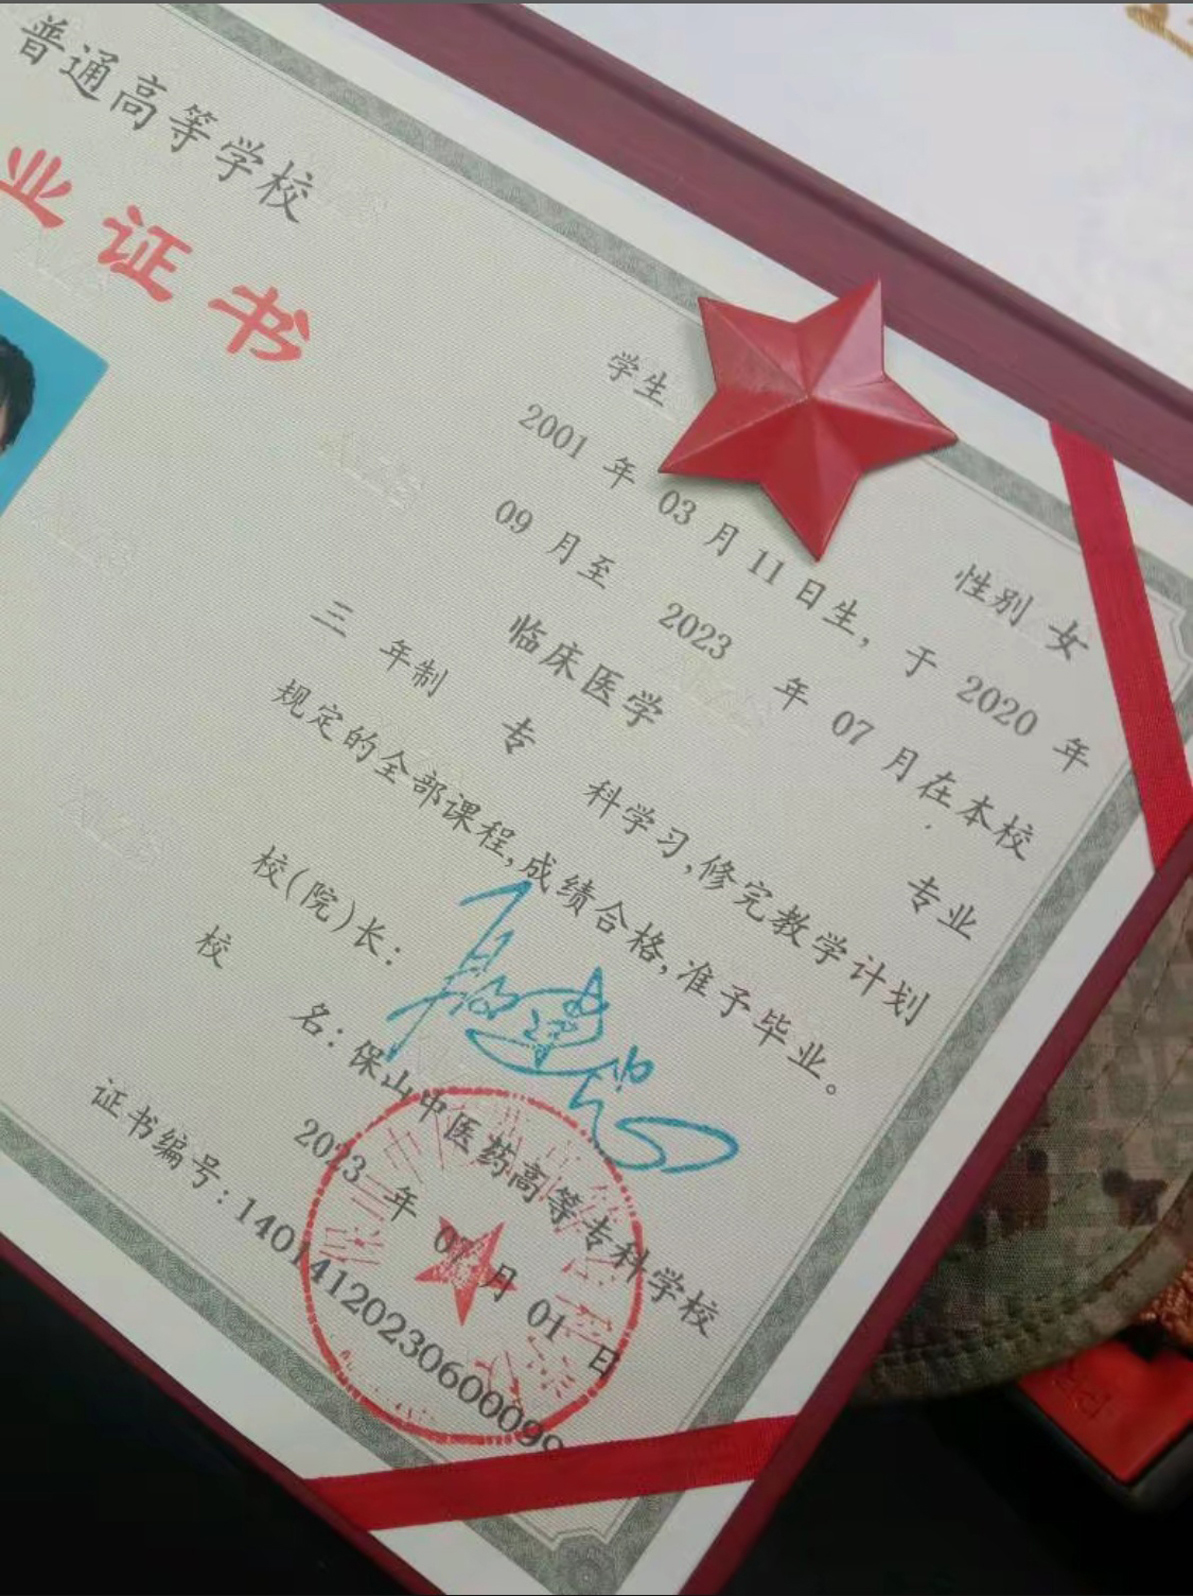 普通高等学校
业证书
学生
性别 女
2001 年 03 月 11 日生，于 2020 年
09 月至 2023 年 07 月在本校
临床医学 专业
三 年制 专 科学习，修完教学计划
规定的全部课程，成绩合格，准予毕业。
校（院）长：
校 名：保山中医药高等专科学校
2023 年 07 月 01 日
证书编号：14014120230600090